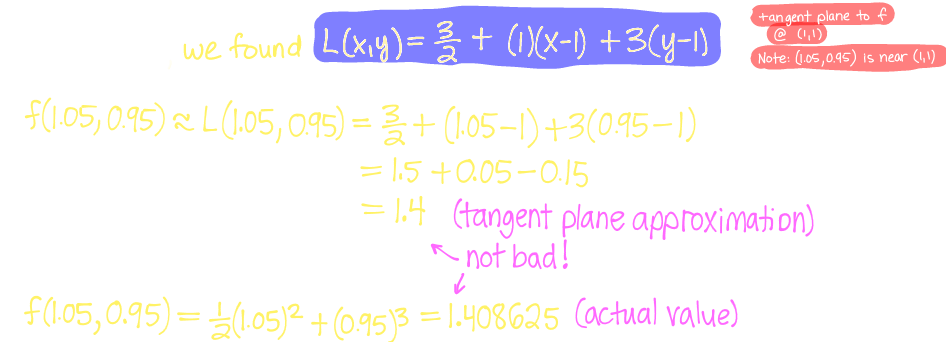 we found L(x,y) = 3/2 + (1)(x-1) + 3(y-1)
tangent plane to f
@ (1,1)
Note: (1.05, 0.95) is near (1,1)
f(1.05, 0.95) ≈ L(1.05, 0.95) = 3/2 + (1.05-1) + 3(0.95-1)
= 1.5 + 0.05 - 0.15
= 1.4 (tangent plane approximation)
not bad!
f(1.05, 0.95) = 1/2(1.05)² + (0.95)³ = 1.408625 (actual value)